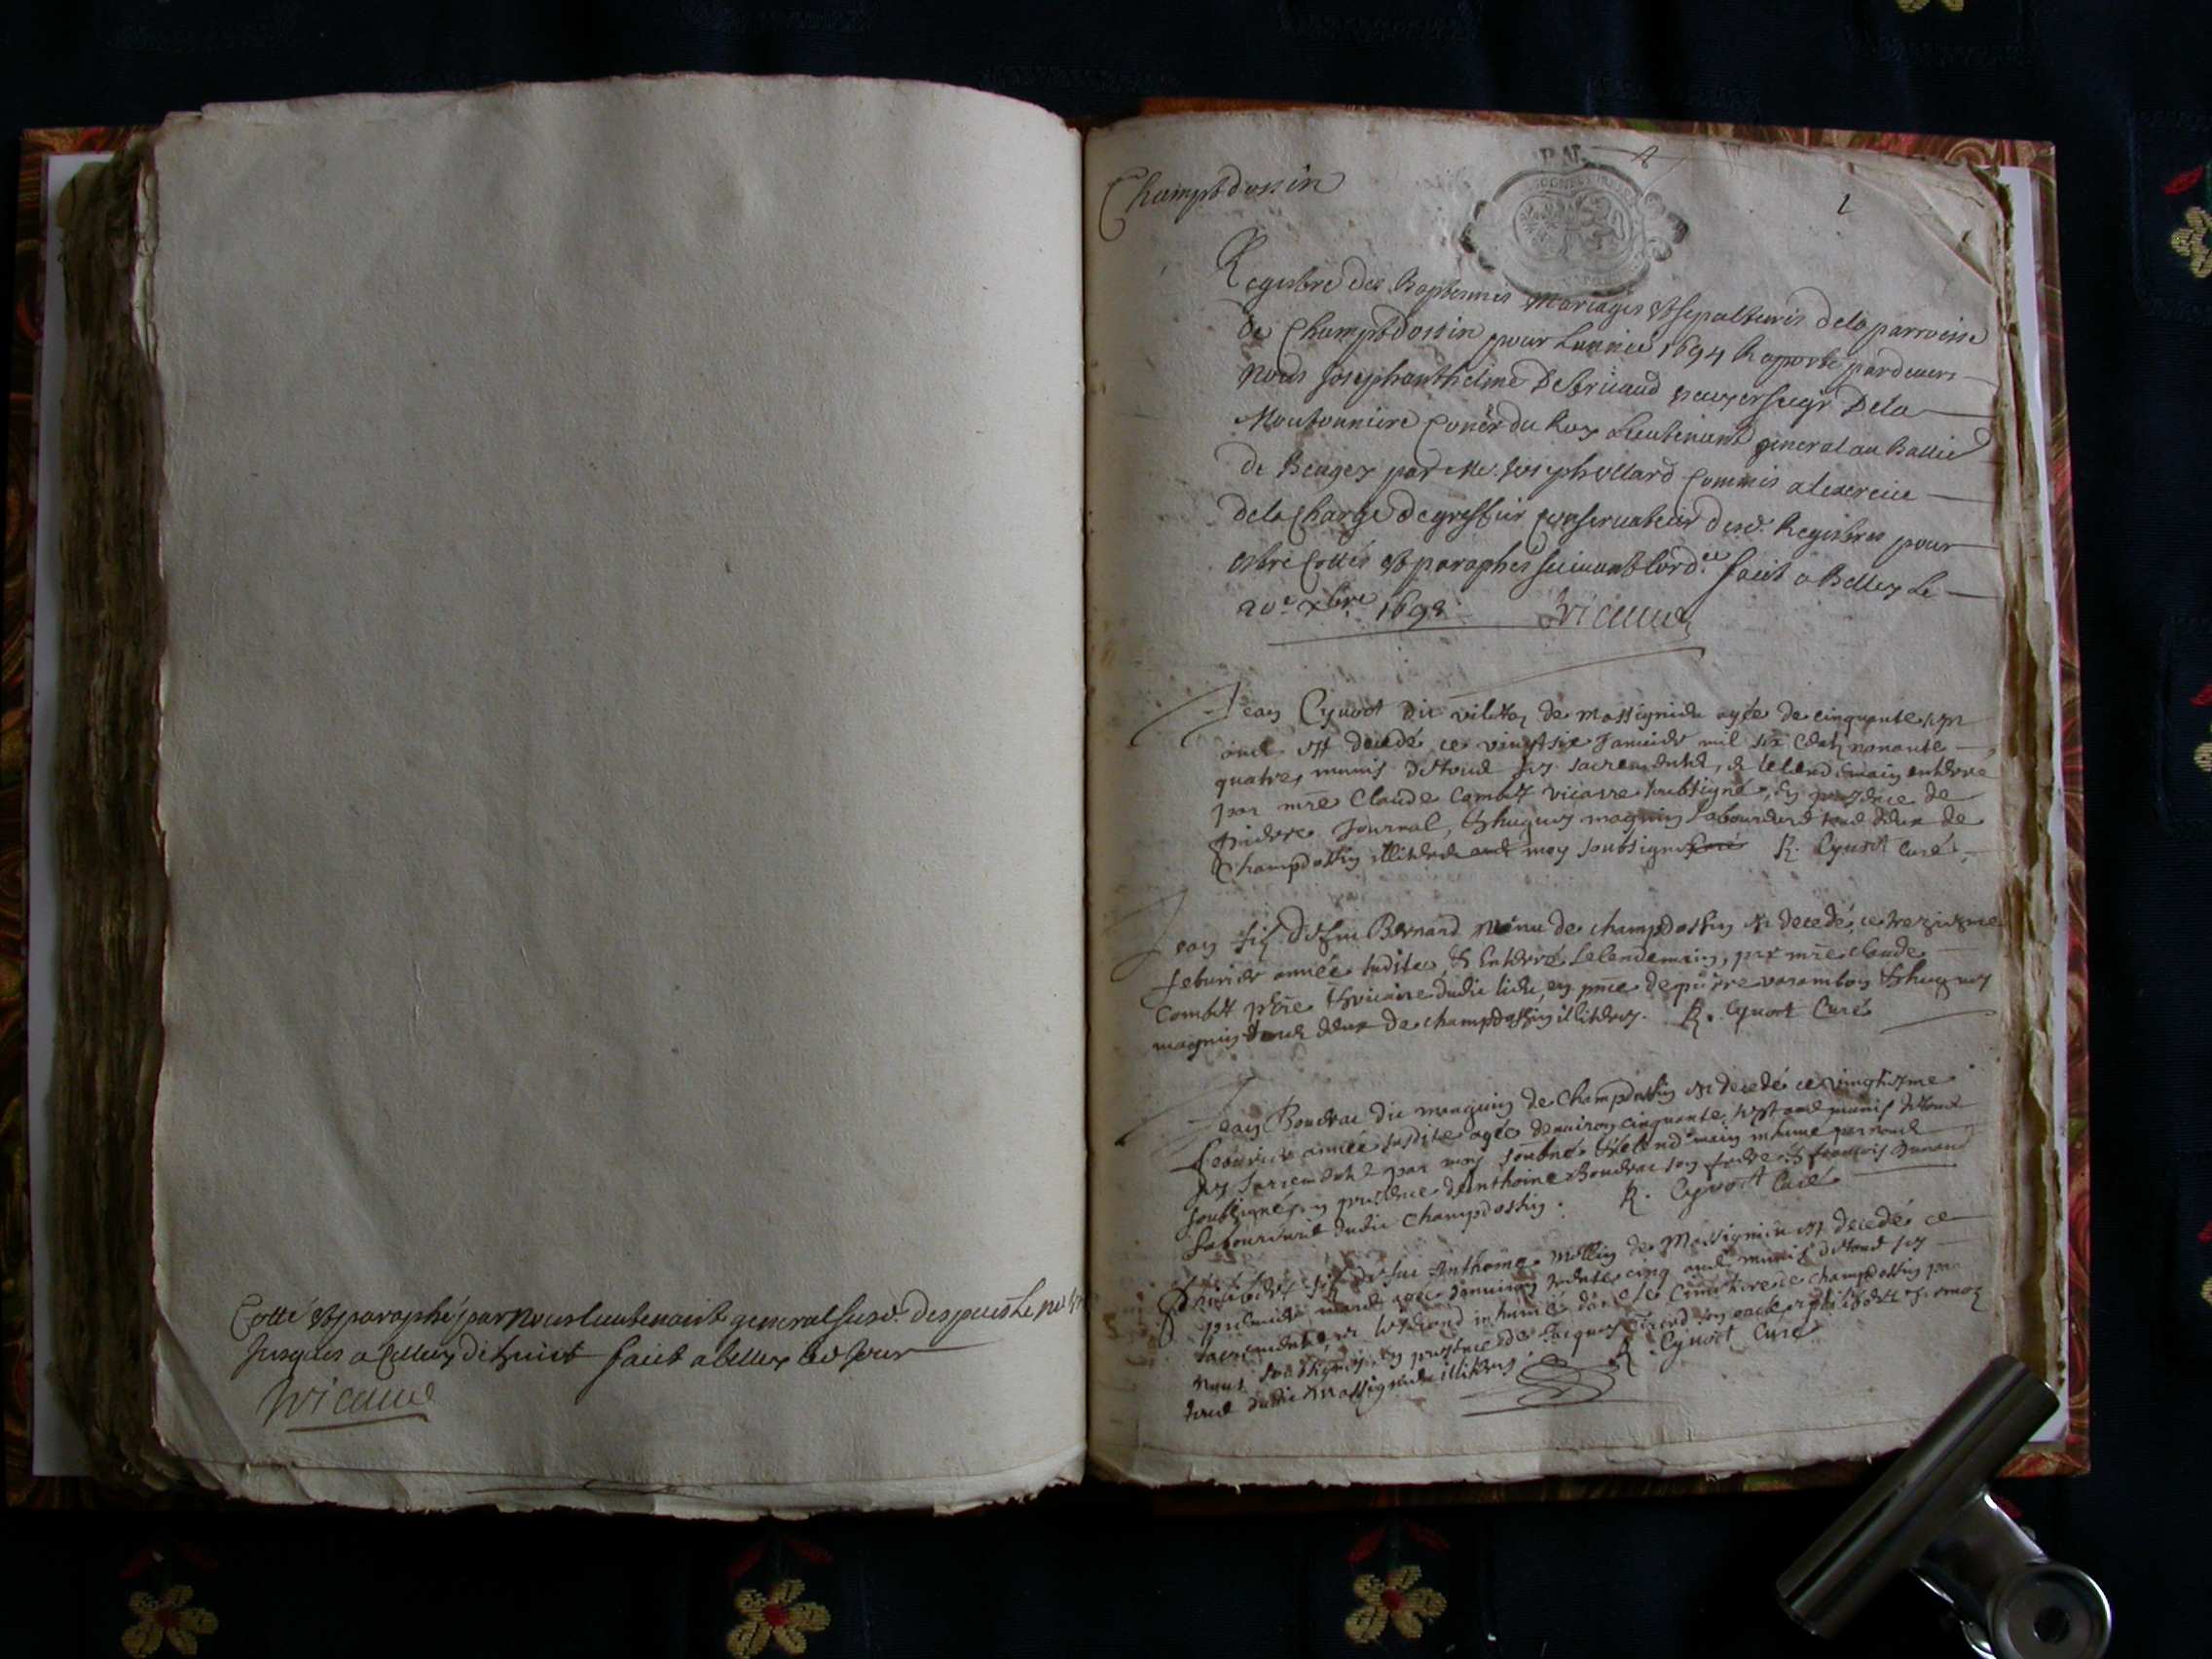 Cotté et paraphé par nous lieutenant general susd. despuis le
Jusques a Celluy de huict faict a belley led Jour
Champtdossin
1
Registre des Baptesmes Mariages et sepultures de la parroisse
de Champtdossin pour Lannée 1694 Raporté pardevers
nous Joseph anthelme Seigr De la
Moutonniere Coner du Roy Lieutenant general au Bailie
de Beugey par Me. Joseph Commis a lexercice
de la Charge de greffier Conservateur desd. Registres pour
estre Cottés et paraphés suivant lord.ce faict a Belley Le
20e xbre 1693
Jean Cyvoct dit de Massignieu agée de cinquante sept
ans est decedé ce vingt six Januier mil six cents nonante
quatre, munis de tous ses sacrements, et le lendemain enterré
par mre Claude Combet vicaire soubsigné, en presence de
pierre Journal, et hugues magnin Laboureurs tous deux de
Champdossin illiterés moy soubsigné R. Cyvoct Curé
Jean fils de feu Bernard de champdossin est decedé ce treziesme
feburier année susdite, et Enterré Lelendemain, par mre claude
Combet pbre et vicaire dudit lieu, en pnce de pierre varambon et hugues
magnin tous deux de champdossin illiterés. R. Cyvoct Curé
Jean Boudrac dit manguin de Champdossin est decedé ce vingtiesme
feburier année susdite agée denuiron cinquante sept ans munis de tous
ses sacrements par moy soubné et le lendemain inhumé par nous
soubsigné, en presence danthoine Boudrac son frere et francois
Laboureurs dudit Champdossin. R. Cyvoct Curé
fils de feu Anthoine Mollin de Massignieu est decedé ce
premier mars agée denuiron trente cinq ans munis de tous ses
sacrements, et inhumé dans le Cimetiere de champdossin par
nous soussigné, en presence de Jacques
tous dudit Massignieu illiterés. R. Cyvoct Curé